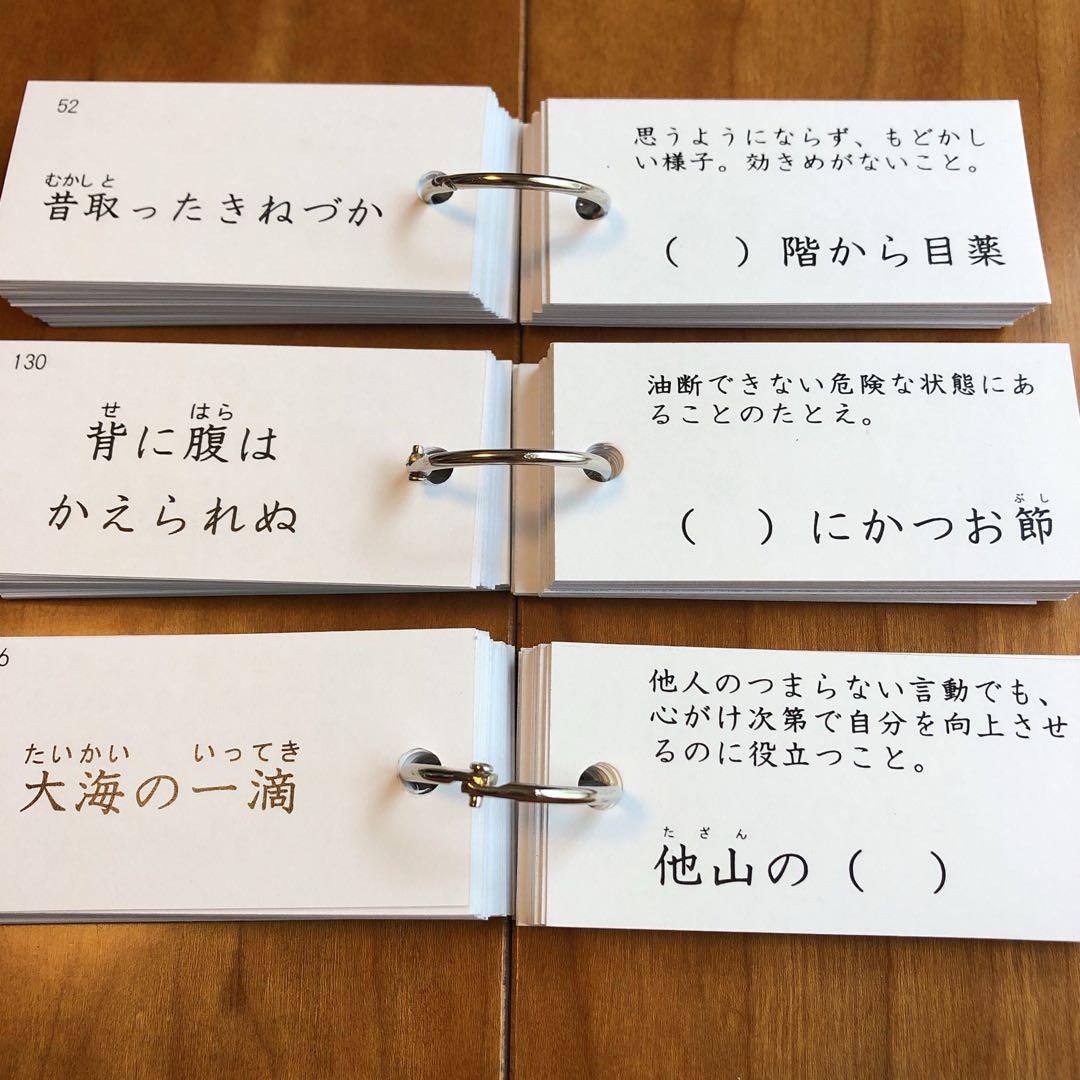 52
むかしと
昔取ったきねづか
思うようにならず、もどかし
い様子。効きめがないこと。
（　）階から目薬
130
せ　はら
背に腹は
かえられぬ
油断できない危険な状態にあ
ることのたとえ。
ぶし
（　）にかつお節
6
たいかい　いってき
大海の一滴
他人のつまらない言動でも、
心がけ次第で自分を向上させ
るのに役立つこと。
たざん
他山の（　）